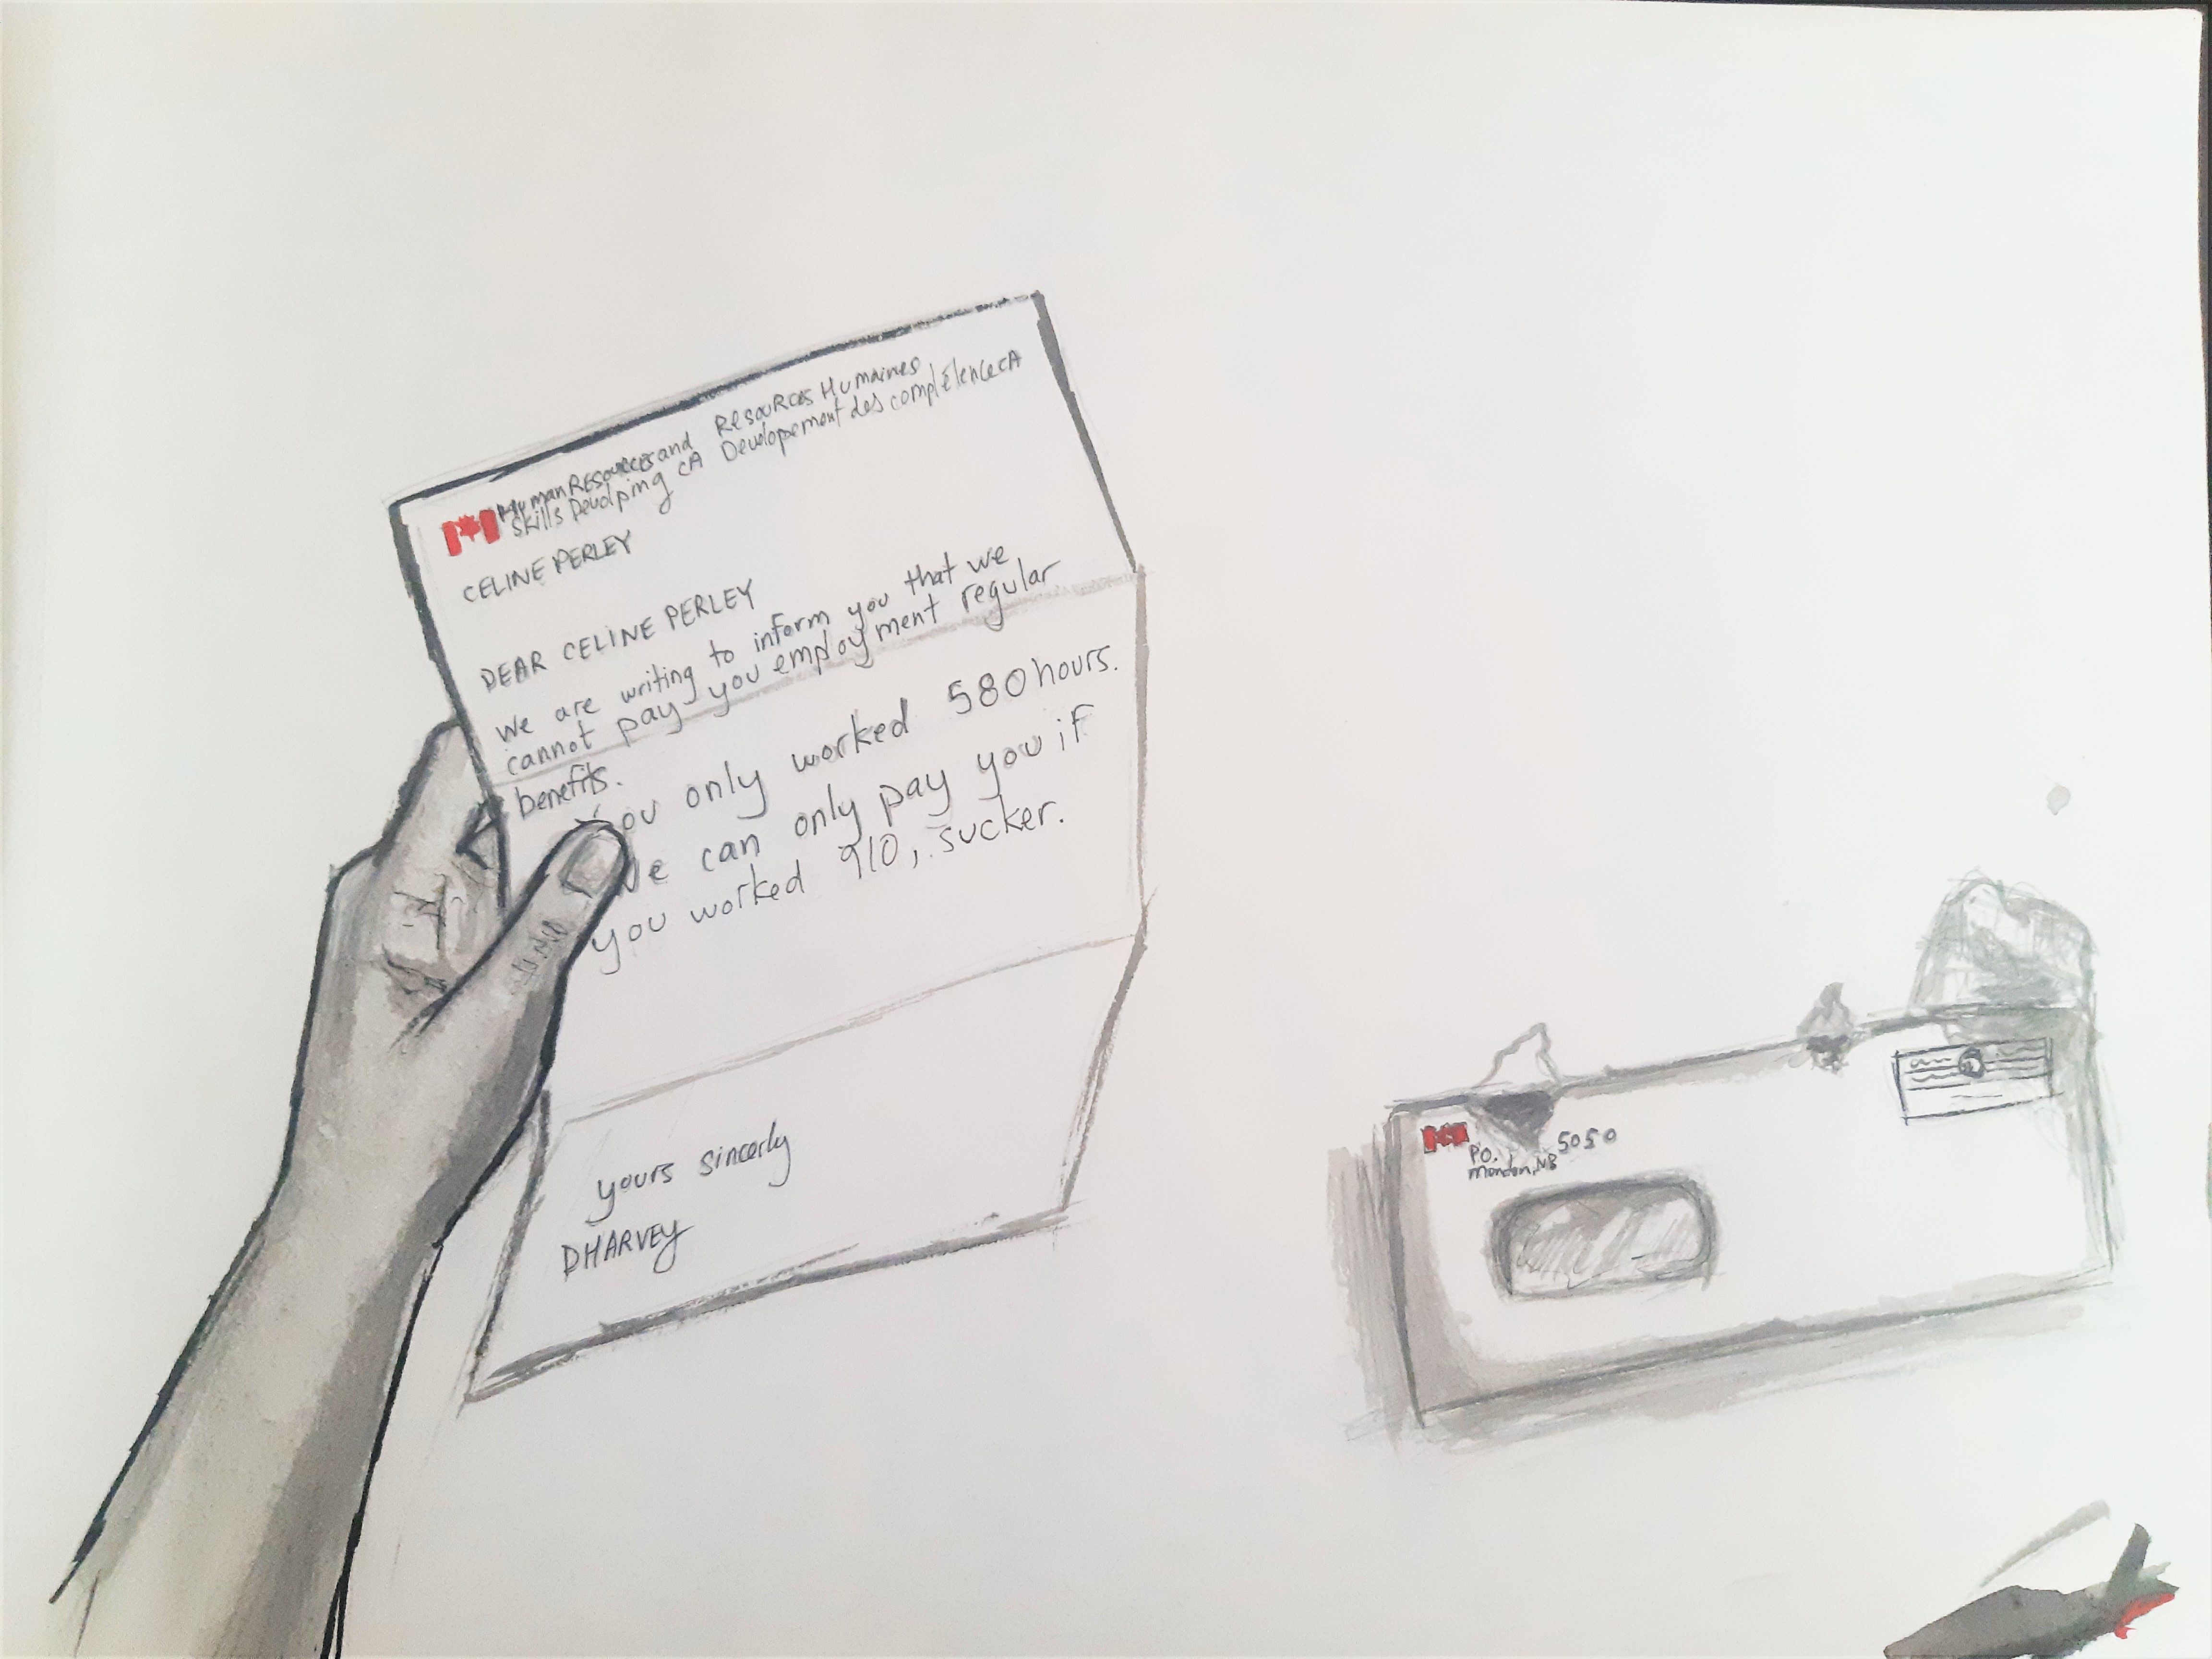 Human Resources and Resources Humaines
Skills Develping CA Developement des complélence CA
CELINE PERLEY
DEAR CELINE PERLEY
We are writing to inform you that we
cannot pay you employment regular
benefits.
You only worked 580 hours.
We can only pay you if
you worked 910, sucker.
yours sincerly
DHARVEY
PO. 5050
NB